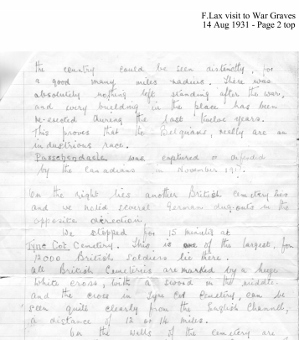 F.Lax visit to War Graves
14 Aug 1931 - Page 2 top
the country could be seen distinctly, for
a good many miles radius. There was
absolutely nothing left standing after the war,
and every building in the place has been
re-erected during the last twelve years.
This proves that the Belgians, really are an
industrious race.
Passchendaele was captured &
by the Canadians in November 1917.
On the right lies another British cemetery
and we noted several German dug-outs in the
opposite direction.
We stopped for 15 minutes at
Tyne Cot Cemetery. This is one of the largest, for
12000 British soldiers lie here.
All British Cemeteries are marked by a huge
white cross, with a sword in the middle
and the cross in Tyne Cot Cemetery, can be
seen quite clearly from the English Channel,
a distance of 12 or 14 miles.
On the walls of the cemetery are